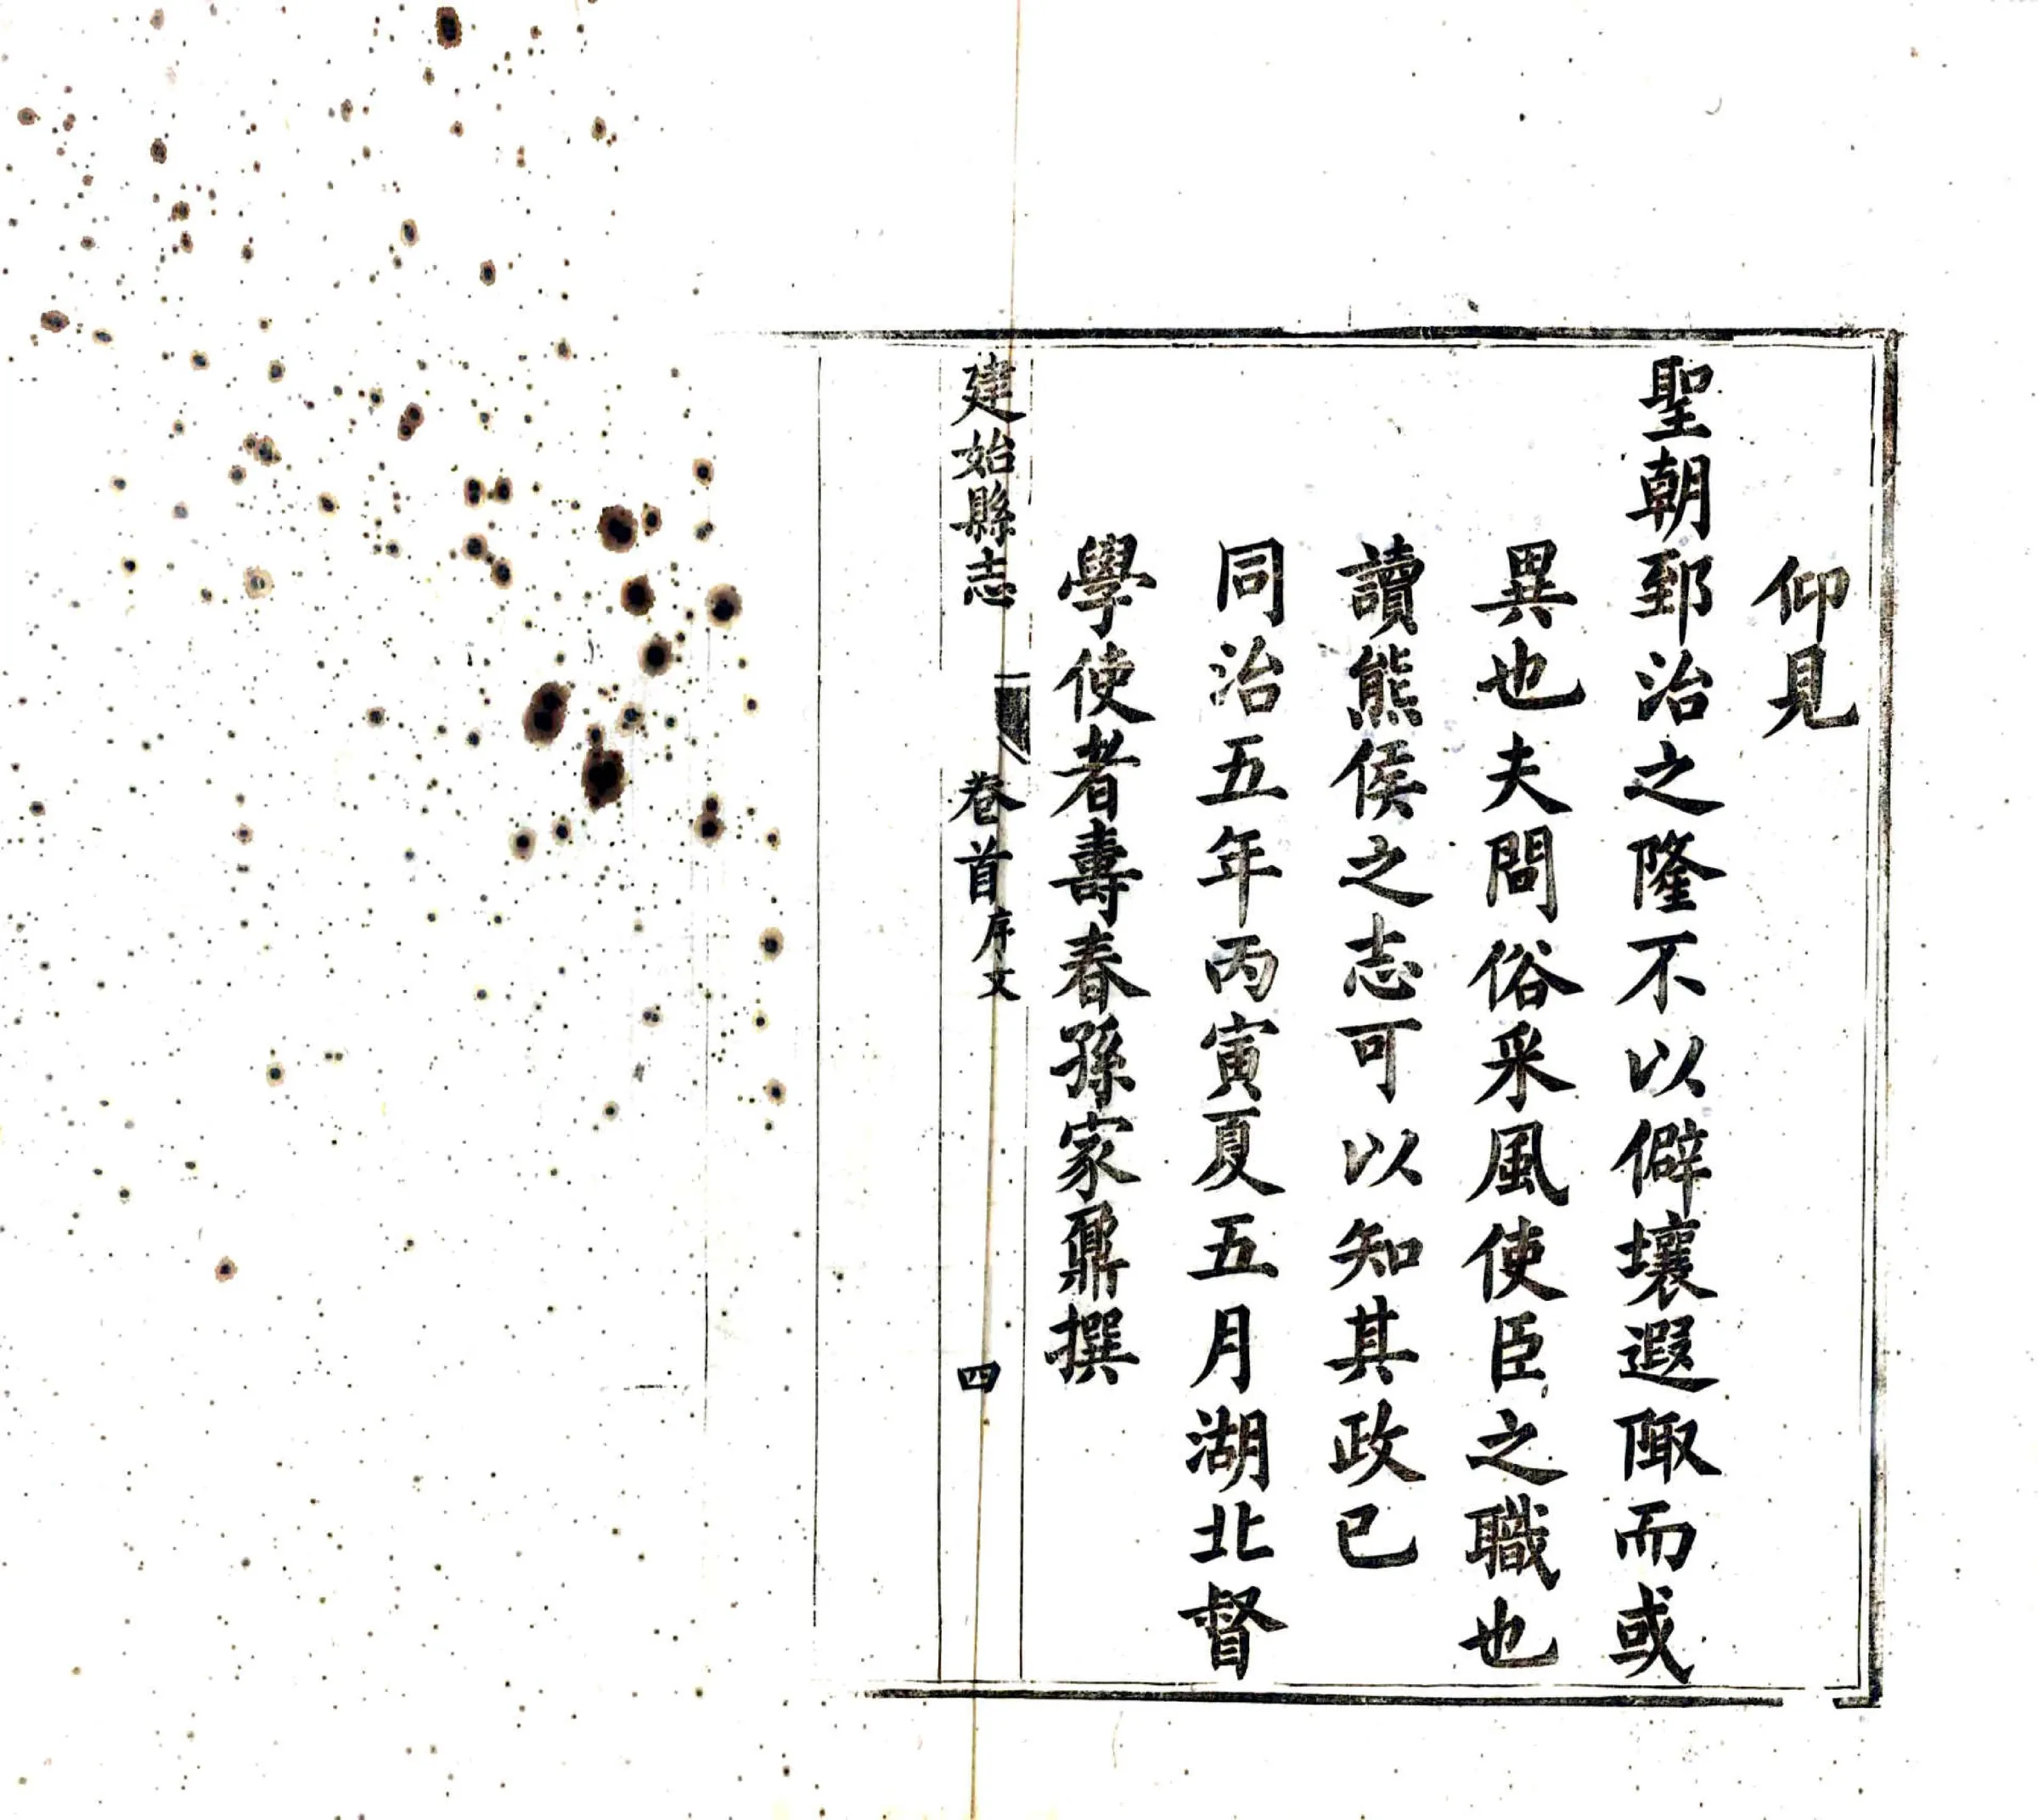 仰見
聖朝郅治之隆不以僻壤遐陬而或
異也夫問俗采風使臣之職也
讀熊侯之志可以知其政已
同治五年丙寅夏五月湖北督
學使者壽春孫家鼐撰
建始縣志
卷首
序文
四